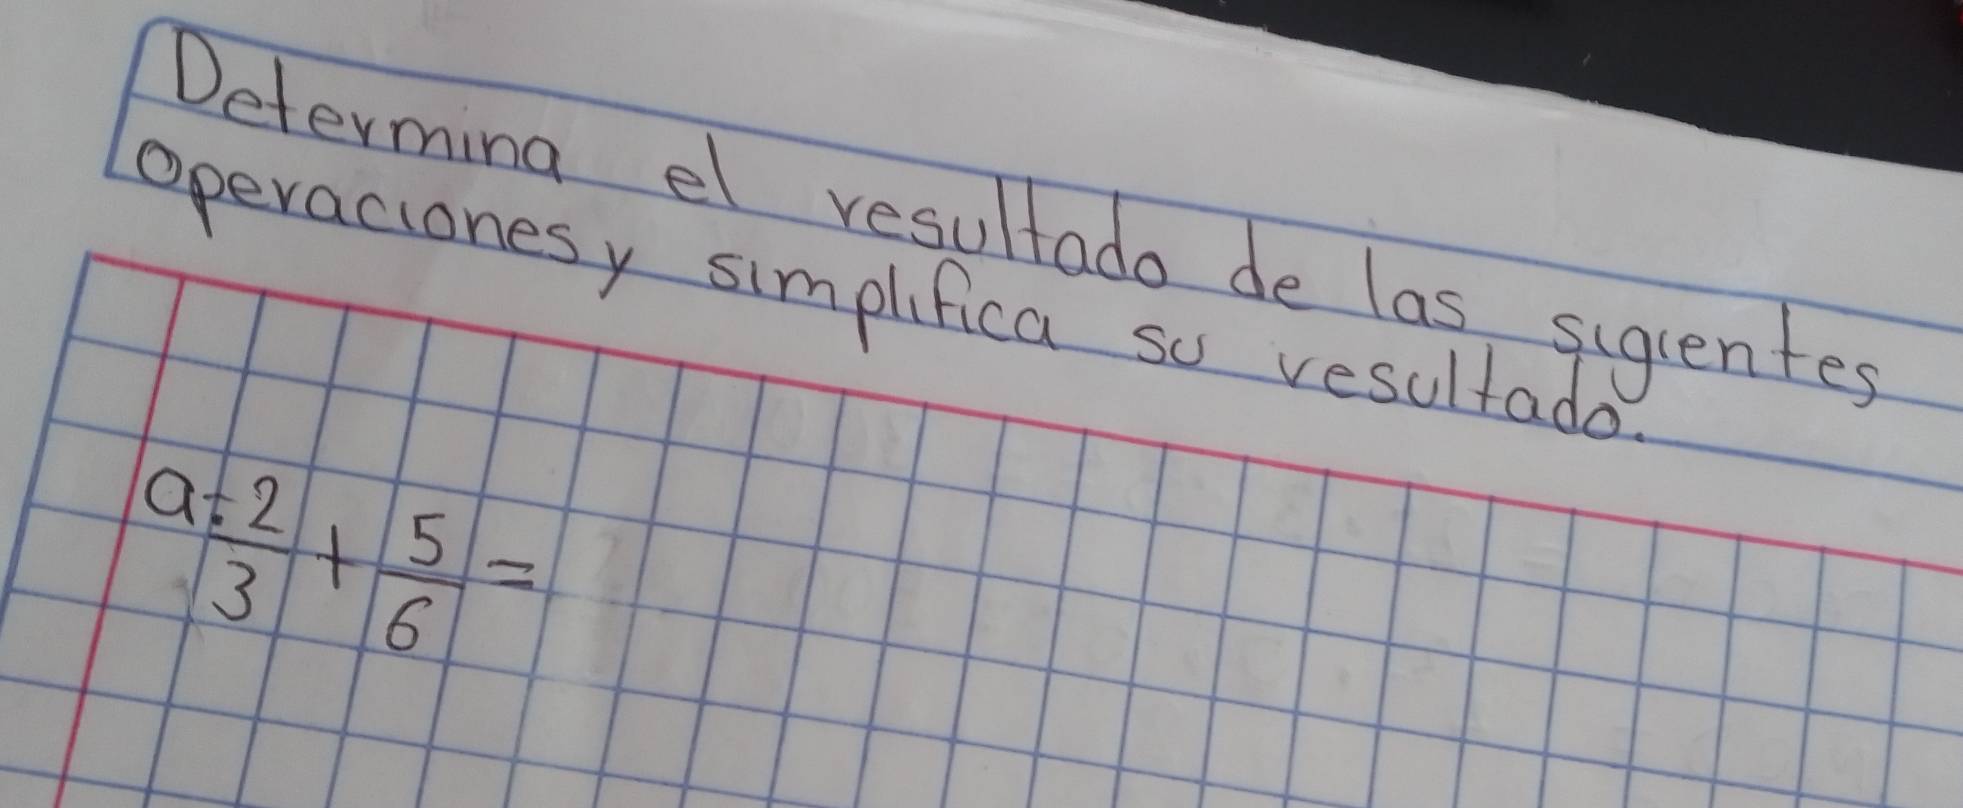 Determina el resultado de las sigientes
operaciones y simplifica su resultado.
a÷ 2/3 + 5/6 =